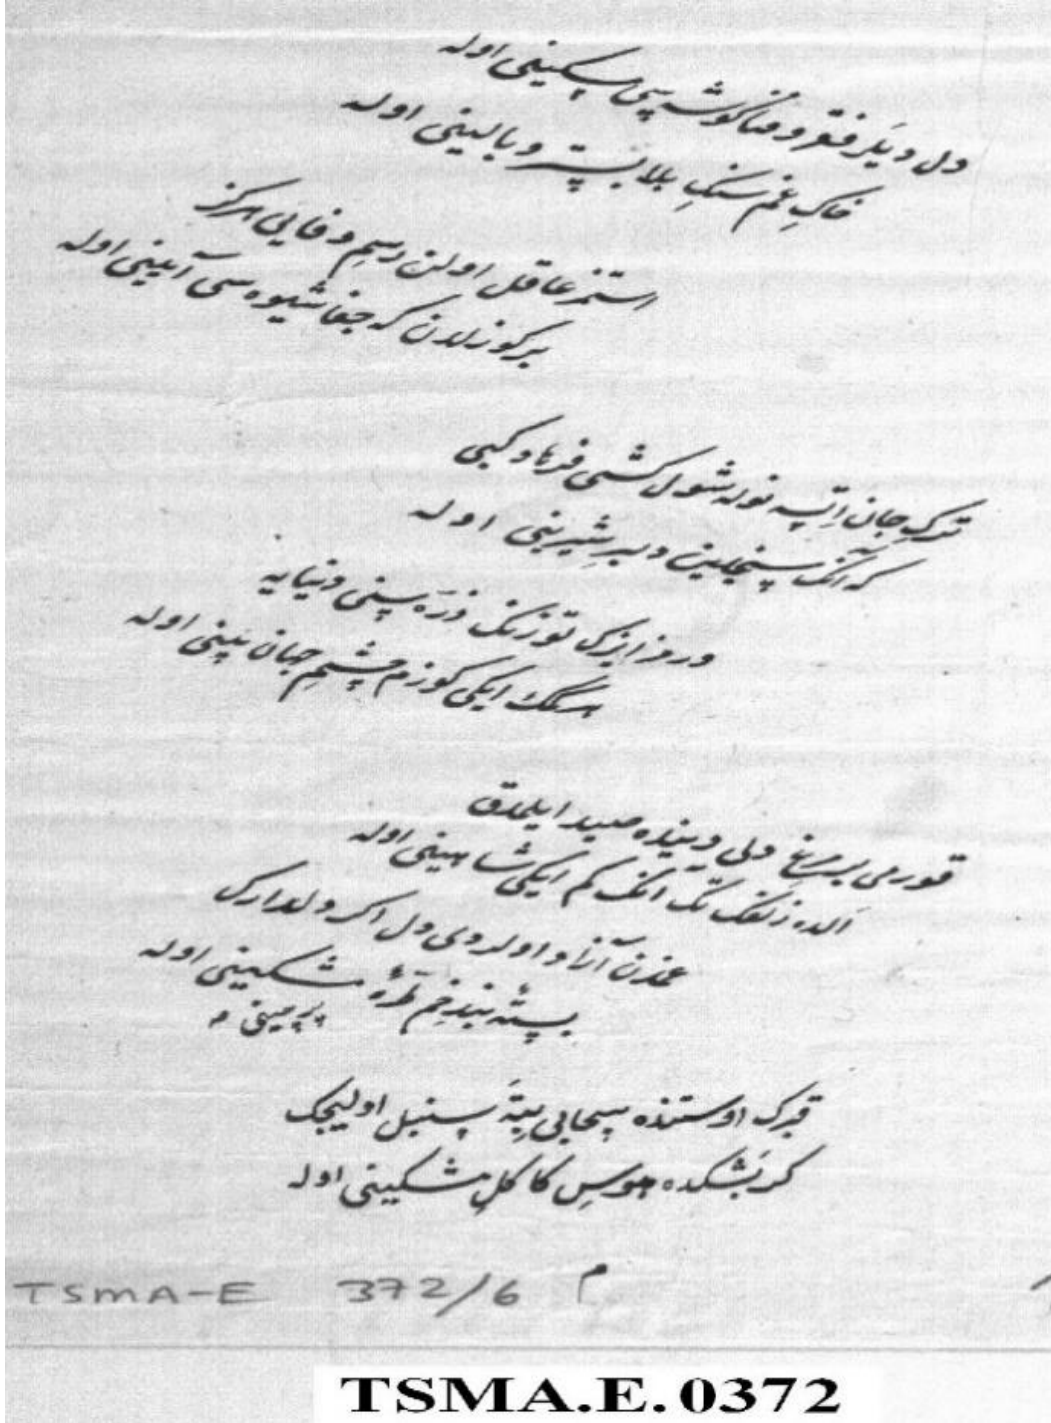 دل دیلر فقر و فنا کوشه سی مسکینی اوله
خاکِ غم سنکِ بلا بستر و بالینی اوله
استمز عاقل اولن رسمِ وفایی هرکز
بر کوزلدن که جفا شیوه سی آیینی اوله
ترکِ جان اِتسه نوله شول کشی فرهاد کبی
که آنک سنجلین دلبرِ شیرینی اوله
ویرمز ایزک توزنک ذرّه سنی دنیایه
هرکمک ایکی کوزم چشمِ جهان بینی اوله
قورمی بر مرغِ دلی دهرده صید ایلمدق
الده زلفک تک انک کم ایکی شاهینی اوله
غمدن آزاد اولردی دل اکر دلدارک
بستۀ بندِ خمِ طرّۀ مشکینی اوله
پرچینی
قبرک اوستنده محبی بِتَه سنبل اولیجک
کر بَشکده هوسِ کاکلِ مشکینی اوله
TSMA-E 372/6 م
TSMA.E.0372